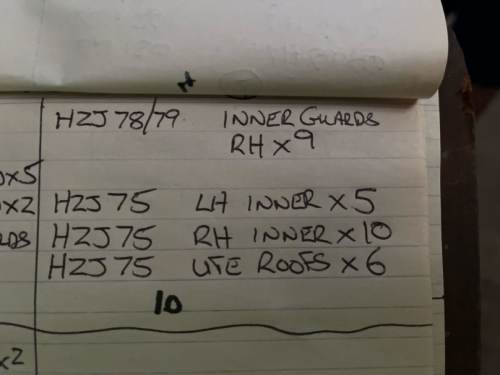 HZJ 78/79 INNER GUARDS
RH x 9
x5
x2 HZJ 75 LH INNER x 5
RDS HZJ 75 RH INNER x 10
HZJ 75 UTE ROOFS x 6
10
x2